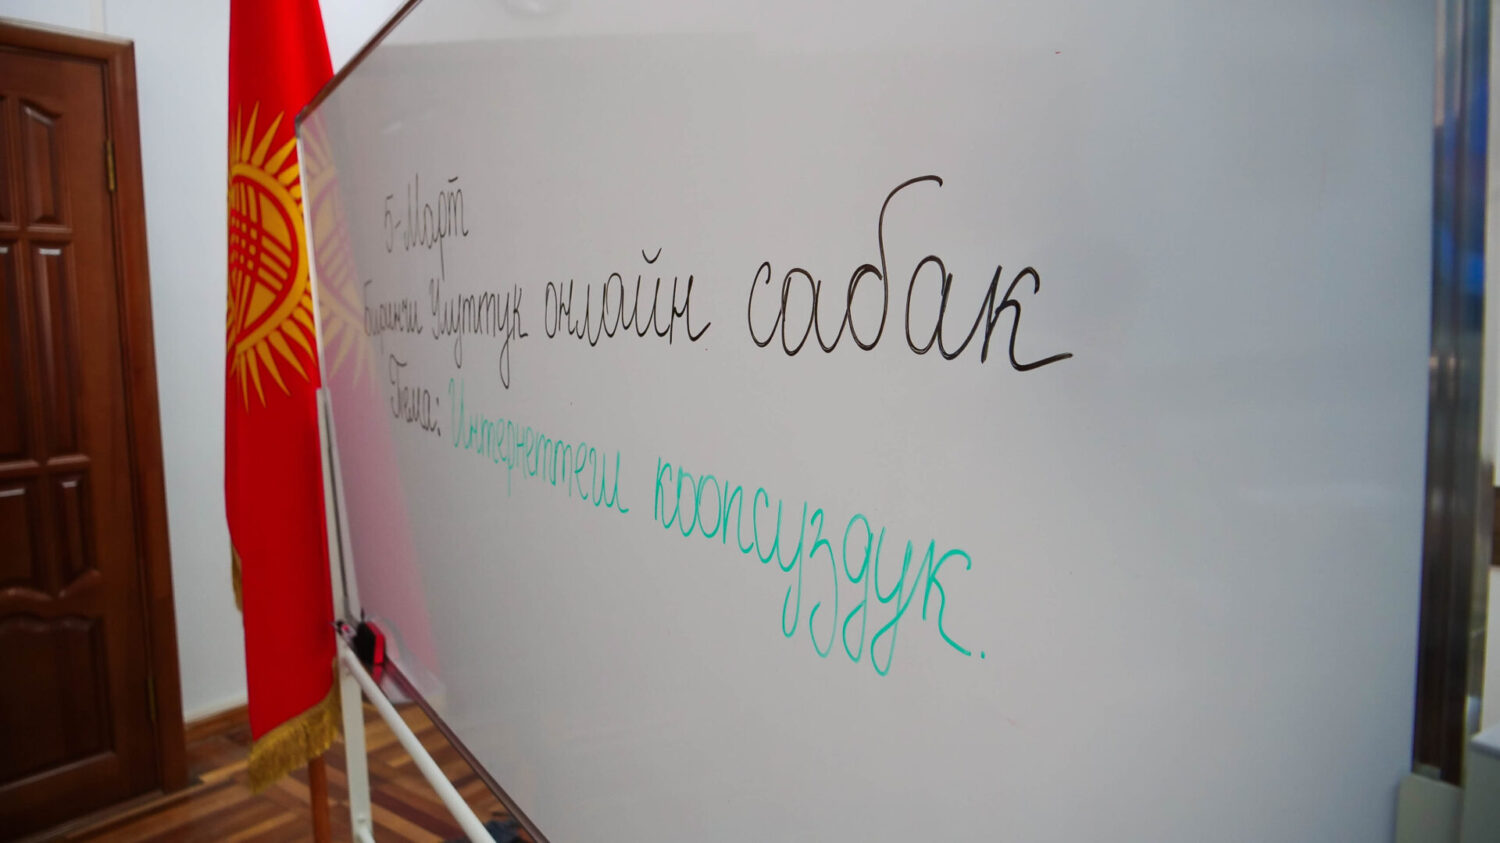 5-Март
Биринчи Улуттук онлайн сабак
Тема: Интернеттеги коопсуздук.